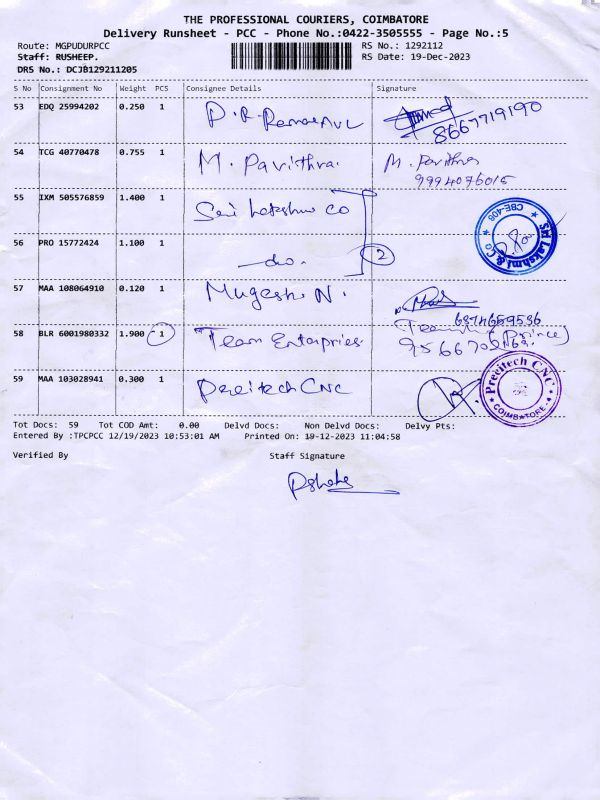 THE PROFESSIONAL COURIERS, COIMBATORE
Delivery Runsheet - PCC - Phone No.:0422-3505555 - Page No.:5
Route: MGPUDURPCC RS No.: 1292112
Staff: RUSHEEP. RS Date: 19-Dec-2023
DRS No.: DCJB129211205
S No Consignment No Weight PCS Consignee Details Signature
53 EDQ 25994202 0.250 1 P.R.
8667719190
54 TCG 40770478 0.755 1 M. Pavithra. M. Pavithra
9994076015
55 IXM 505576859 1.400 1 Sri Lakshmi CO
CBE-406
Sri Lakshmi & Co
56 PRO 15772424 1.100 1 —do. 2
57 MAA 108064910 0.120 1 Mugesh N.
58 BLR 6001980332 1.900 1 Team Enterpries. Team (Prince)
59 MAA 103028941 0.300 1 Precitech CNC
Precitech CNC
COIMBATORE
Tot Docs: 59 Tot COD Amt: 0.00 Delvd Docs: Non Delvd Docs: Delvy Pts:
Entered By :TPCPCC 12/19/2023 10:53:01 AM Printed On: 19-12-2023 11:04:58
Verified By Staff Signature